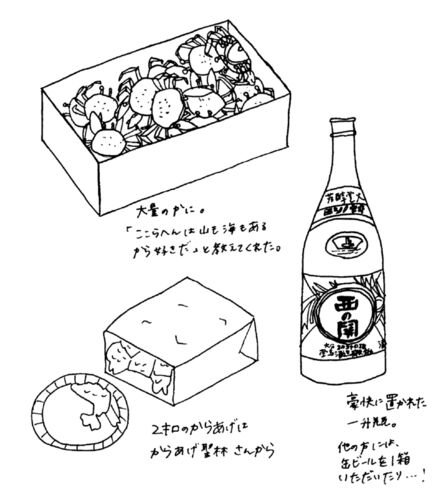 大量のかに。
「ここらへんは山も海もある
から好きだ」と教えてくれた。
西の関
2キロのからあげは
からあげ聖林 さんから
豪快に置かれた
一升瓶。
他の方には、
缶ビールを1箱
いただいたり…!